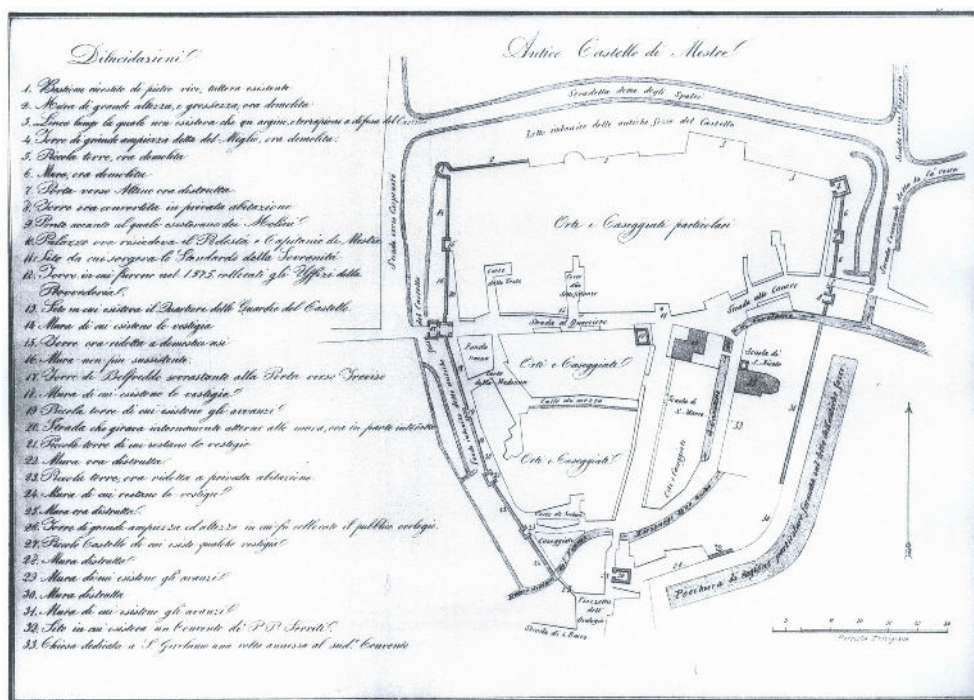 Dilucidazioni
Antico Castello di Mestre
1. Bastione rivestito di pietre vive, tuttora esistente
2. Mura di grande altezza, e grossezza, ora demolita
3. Linea lungo la quale non esisteva che un argine, e terrapieno a difesa del Castello
4. Torre di grande ampiezza detta del Miglio, ora demolita
5. Piccola torre, ora demolita
6. Mura, ora demolita
7. Porta verso Altino ora distrutta
8. Torre ora convertita in privata abitazione
9. Ponte accanto al quale esistevano dei Molini
10. Palazzo ove risiedeva il Podestà, e Capitanio di Mestre
11. Sito da cui sorgeva lo Stendardo della Sovranità
12. Torre in cui furono nel 1525 collocati gli Uffizi della
Provenderia
13. Sito in cui esisteva il Quartiere delle Guardie del Castello
14. Mura di cui esistono le vestigia
15. Torre ora ridotta a domestici usi
16. Mura non più sussistente
17. Torre di Belfredo sovrastante alla Porta verso Treviso
18. Mura di cui esistono le vestigia
19. Piccola torre di cui esistono gli avvanzi
20. Strada che girava internamente attorno alle mura, ora in parte
21. Piccola torre di cui restano le vestigie
22. Mura ora distrutta
23. Piccola torre, ora ridotta a privata abitazione
24. Mura di cui restano le vestigie
25. Mura ora distrutta
26. Torre di grande ampiezza ed altezza in cui fu collocato il pubblico orologio
27. Piccolo Castello di cui esiste qualche vestigia
28. Mura distrutta
29 Mura di cui esistono gli avanzi
30. Mura distrutta
31. Mura di cui esistono gli avanzi
32. Sito in cui esisteva un Convento de' PP. Serviti
33. Chiesa dedicata a S. Girolamo una volta annessa al sud.o Convento
Stradella detta degli Spalti
Letto imbonito delle antiche fosse del Castello
Orti e Caseggiati particolari
Corte
della
Corte
Strada al Quartiere
Strada alle Canove
Orti e Caseggiati
Calle di mezzo
Scuola di
S. Marco
Scuola di
Orti e Caseggiati
Orti e Caseggiati
Caseggiati
Piazzetta
dell'
Orologio
Strada di S. Rocco
Peschiera di ragione particolare formata nel letto di antica fossa
Pertiche Trivigiane